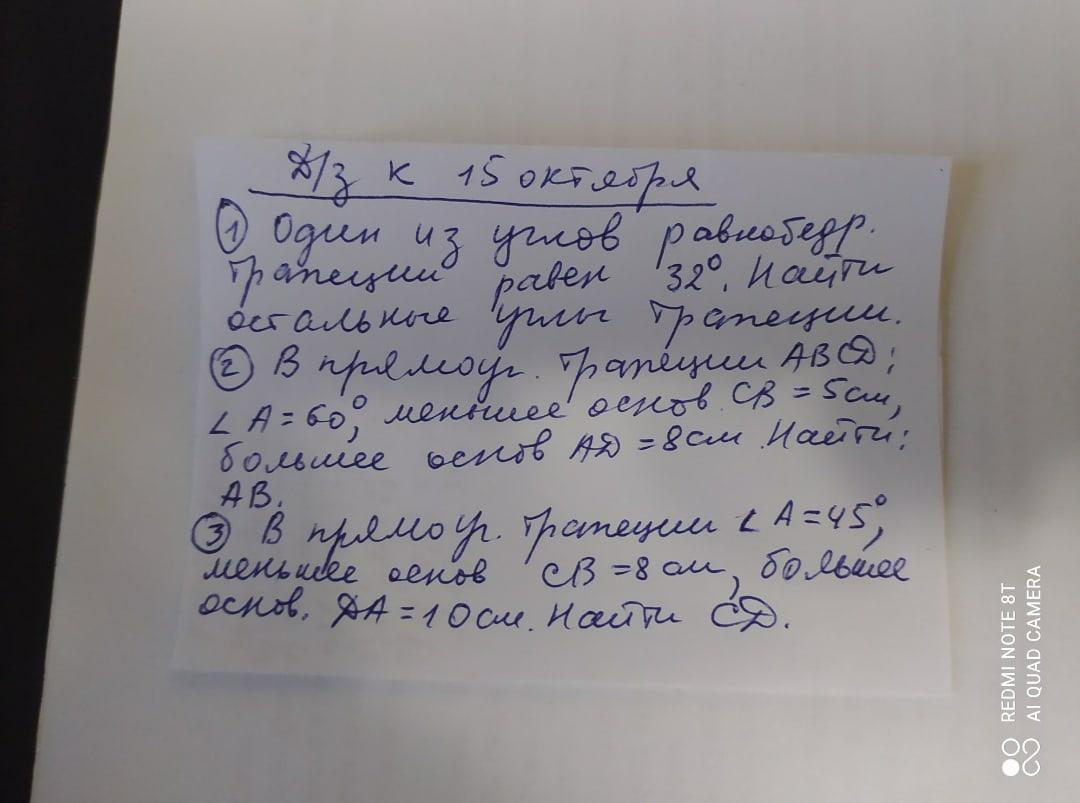 Д/з к 15 октября
① Один из углов равнобедр.
трапеции равен 32°. Найти
остальные углы трапеции.
② В прямоуг. трапеции ABCD;
∠A=60°, меньшее основ. CB = 5см,
большее основ AD = 8см. Найти:
AB.
③ В прямоуг. трапеции ∠A=45°,
меньшее основ CB = 8 см, большее
основ. DA = 10 см. Найти CD.
REDMI NOTE 8T
AI QUAD CAMERA